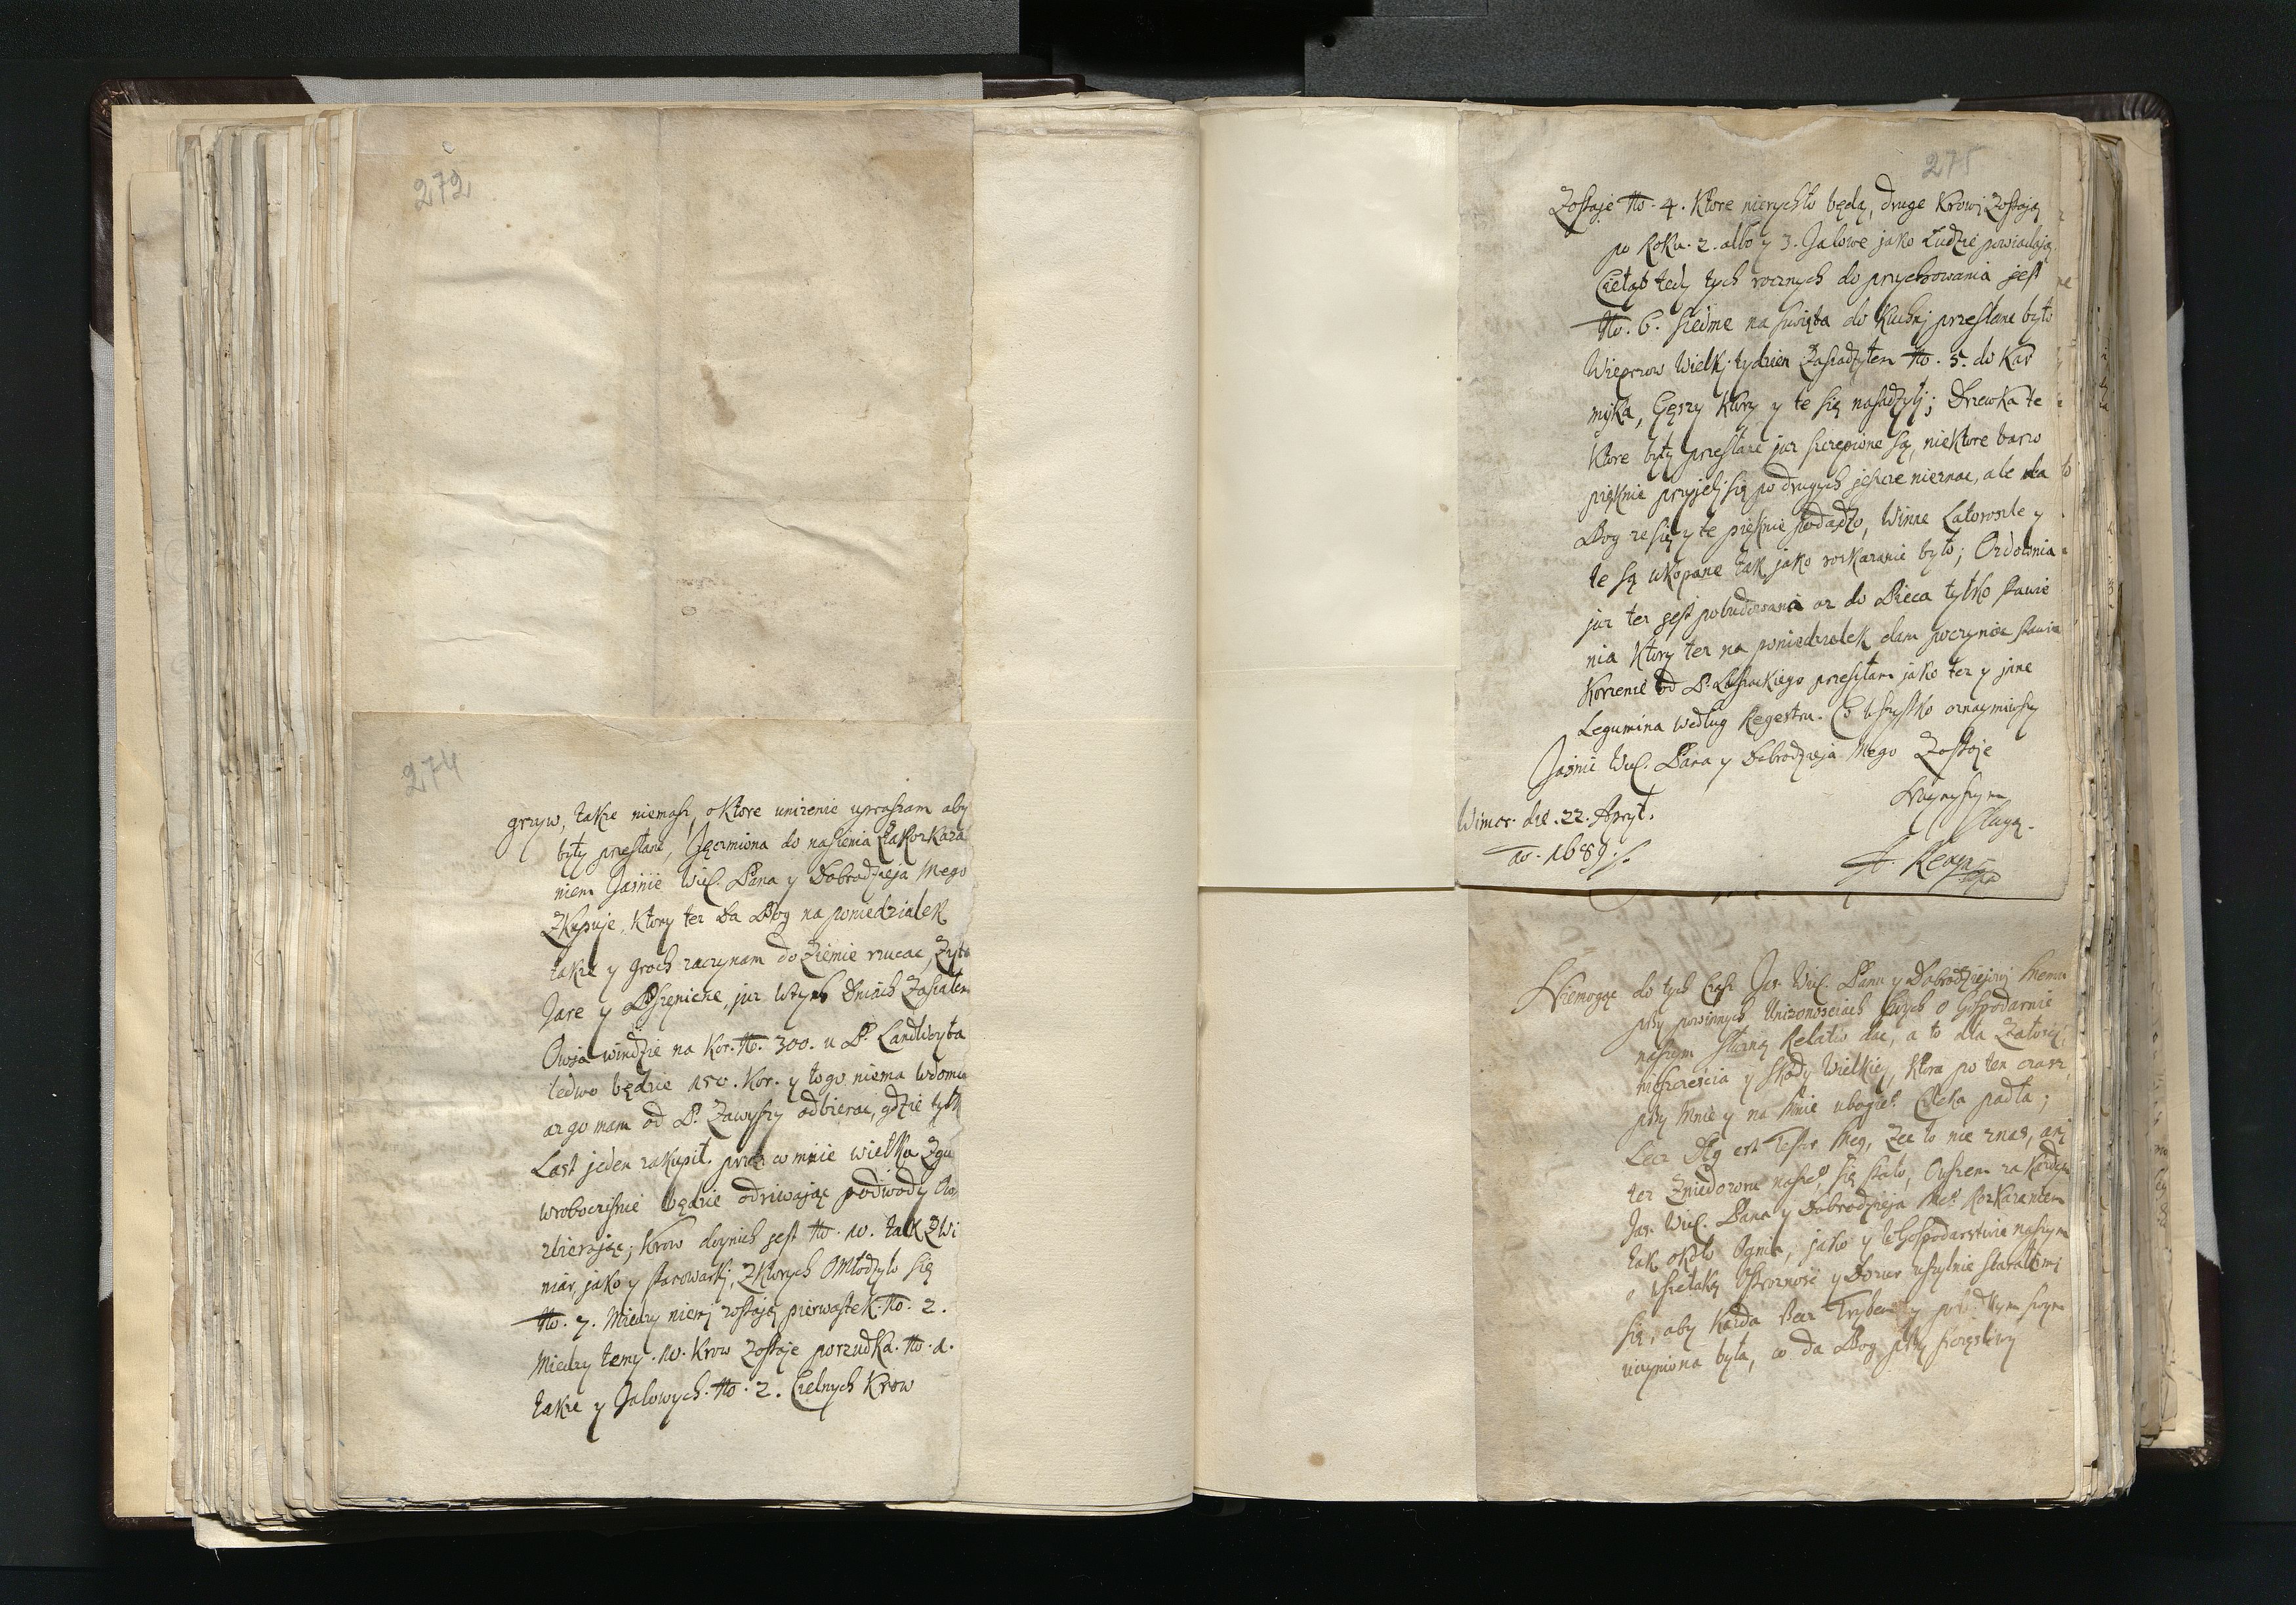 272
274
grzyw, takze niemasz, oktore unizenie upraszam aby
były przesłane, Jęczmiona do nasienia Zakozkaza
niem Jasnie Wiel. Pana y Dobrodzieja Mego
Zkupuje, Ktory tez Da Bog na poniedzialek
takze y groch zaczynam do Ziemie rzucac, Zyto
Jare y Pszenicze, juz wtych Dniach Zasiałem
Owsa windzie na Kor. No. 300. u P. Landwoyta
ledwo będzie 150. Kor. y togo niema wdomu
azgo mam od P. Zawyszy odbierac, gdzie tylk
Last jeden zakupił. przez co mnie wielka Zgu
wroboczisnie będzie odziwając podwody Ow
zbierając; Krow doynich jest No. 10. tak Zwi
niar, jako y starowarkj, Zktorych Omłodzyło się
No. 7. Miedzy niemj zostają pierwastek. No. 2.
Miedzy temy. 10. Krow Zostaje porzudka. No. 1.
takze y Jalowych. No. 2. Cielnych Krow
275
Zostaje No. 4. Ktore nierychło będą, druge Krowj Zostają
po Roku. 2. albo y 3. Jalowe jako Ludzie powiadają
Cieląt tedy tych rocznych do przychowania jest
No. 6. siedme na swięta do Kuchnj przesłane było
Wieprzow Wielkj tydzien Zasiadzyłem No. 5. do Kar
mika, Gęszy Ktory y te się nasadzylj; Drzewka te
Ktore były przesłane juz szczepione są, niektore barzo
pięknie przyjelj się po drugych jescze nieznac, ale da
Bog ze się y te pieknie podadzo, Winne Latoroszle y
te są wkopane tak jako rozkazanie było; Ozdownia
juz tez jest pobudowana az do Pieca tylko stawie
nia Ktory tez na poniedzialek dam poczynac stawia
Korzenie od P. przesyłam jako tez y jine
Legumina według Regestru. Co wszystko oznaymiwszy
Jasnie Wiel. Pana y Dobrodzieja Mego Zostaje
Nizynszym
Sługą.
Wimor. die. 22. Apryl.
Ao. 1689.
Niemogąc do tych Czas Jas. Wiel. Panu y Dobrodziejowj Memu
przy powinnych Unizonosciach swych o Gospodarnie
naszym słuzną Relatio dac, a to dla Zalosci
nieszczescia y skody Wielkiej, Ktora po ten czas
przy Mnie y na Mnie ubogieo Człeka padła;
Lecz Bog est Testis Meg, Zee to nie znas, anj
tez Zniedozoru naszeo, się stało, Owszem za Kazdym
Jas. Wiel. Pana y Dobrodzieja Meo Rozkazaniem
tak około Ognia, jako y w Gospodarstwie naszym
o wszelaką Ostroznosc y Dozur usylnie starałemj
się, aby Kazda Recz y swym
uczyniona była, co da Bog przy sczęsliwy